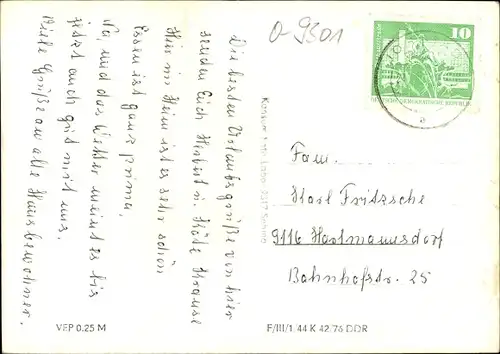 Die besten Urlaubsgrüße von hier
senden Euch Herbert u. Käte Krause
Hier im Heim ist es sehr schön
Essen ist ganz prima.
Na, und das Wetter meint es bis
jetzt auch gut mit uns.
Viele Grüße an alle Hausbewohner.
VEP 0.25 M
O-9301
10
DEUTSCHE DEMOKRATISCHE REPUBLIK
Fam.
Karl Fritzsche
9116 Hartmannsdorf
Bahnhofstr. 25
F/III/1.44 K 42/76 DDR